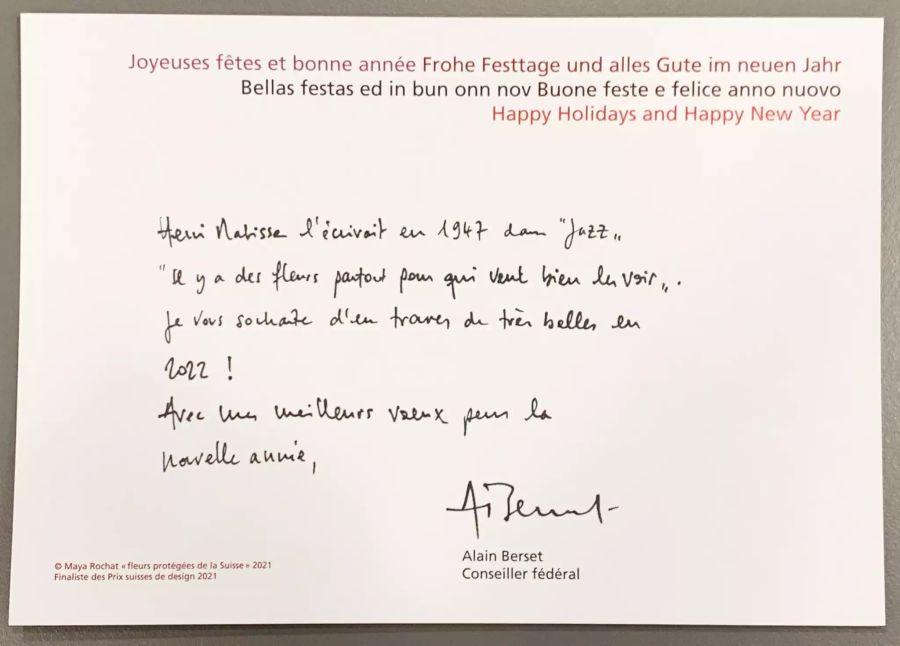 Joyeuses fêtes et bonne année Frohe Festtage und alles Gute im neuen Jahr
Bellas festas ed in bun onn nov Buone feste e felice anno nuovo
Happy Holidays and Happy New Year
Henri Matisse l'écrivait en 1947 dans "Jazz"
"Il y a des fleurs partout pour qui veut bien les voir".
Je vous souhaite d'en trouver de très belles en
2022 !
Avec mes meilleurs vœux pour la
nouvelle année,
Alain Berset
Conseiller fédéral
© Maya Rochat « fleurs protégées de la Suisse » 2021
Finaliste des Prix suisses de design 2021